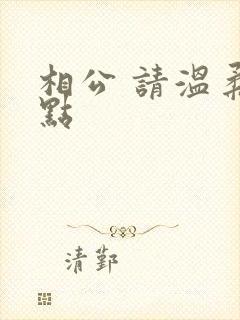 相公 請溫柔
點
清鄞